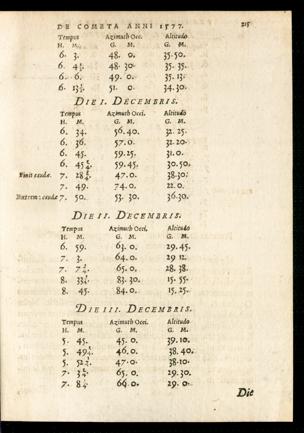 DE COMETA ANNI 1577. 215
Tempus Azimuth Occi. Altitudo
H. M. G. M. G. M.
6. 3. 48. 0. 35. 50.
6. 4½. 48. 30. 35. 35.
6. 6. 49. 0. 35. 13.
6. 13½. 51. 0. 34. 30.
DIE I. DECEMBRIS.
Tempus Azimuth Occi. Altitudo
H. M. G. M. G. M.
6. 34. 56. 40. 32. 25.
6. 36. 57. 0. 32. 20.
6. 45. 59. 25. 31. 0.
6. 45 59. 45. 30. 50.
Finis caudæ. 7. 28 47. 0. 38. 30.
7. 49. 74. 0. 22. 0.
Extrem: caudæ 7. 50. 53. 30. 36. 30.
DIE II. DECEMBRIS.
Tempus Azimuth Occi. Altitudo
H. M. G. M. G. M.
6. 59. 63. 0. 29. 45.
7. 3. 64. 0. 29 12.
7. 7 65. 0. 28. 38.
8. 33 83. 30. 15. 55.
8. 45. 84. 0. 15. 25.
DIE III. DECEMBRIS.
Tempus Azimuth Occi. Altitudo
H. M. G. M. G. M.
5. 45. 45. 0. 39. 10.
5. 49 46. 0. 38. 40.
5. 52 47. 0. 38. 10.
7. 3 65. 30. 29. 30.
7. 8 66. 0. 29. 0.
Die